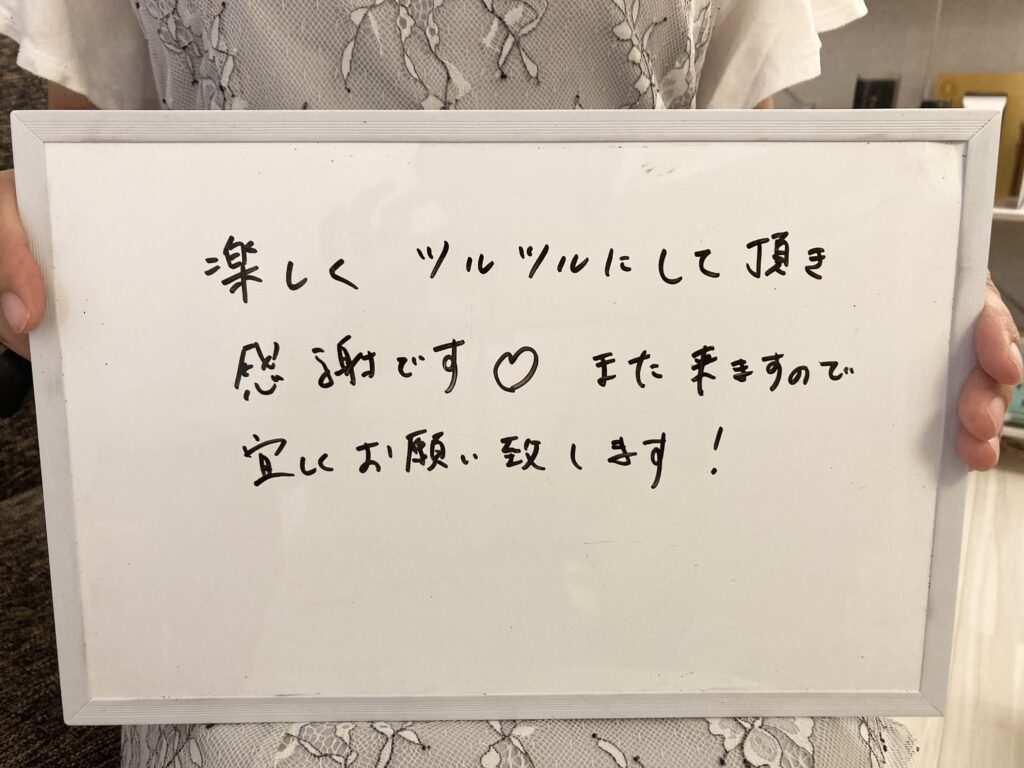 楽しく ツルツルにして頂き
感謝です♡ また来ますので
宜しくお願い致します！